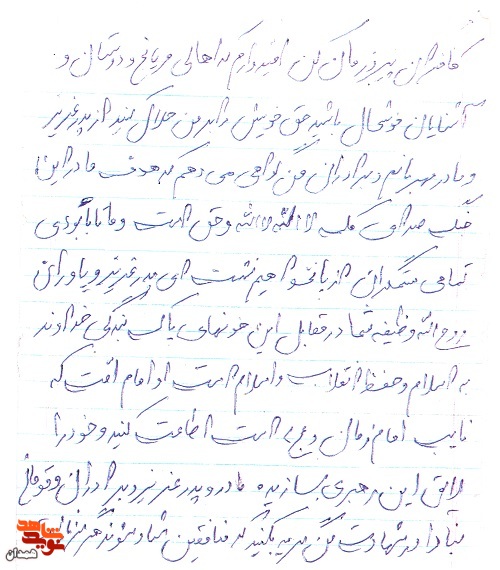 کافران پیروز مان کن امیدوارم که اهالی مریانج و دوستان و
آشنایان خوشحال باشید حق خویش را بر من حلال کنید از پدر عزیز
و مادر مهربانم و برادران من گواهی می دهم که هدف ما در این
جنگ صدای کلمه لا اله الا الله و حق است و ما تا نابودی
تمامی ستمگران از پا نخواهیم نشست ای پدر عزیز و یاوران
روح الله وظیفه شما در مقابل این خونهای پاک بندگی خداوند
به اسلام و حفظ انقلاب و اسلام است از امام امت که
نایب امام زمان (عج) است اطاعت کنید و خود را
لایق این رهبری بسازید مادر و پدر عزیز و برادران و قومان
مبادا در شهادت من گریه بکنید که منافقین شاد شوند
نوید شاهد
همدان